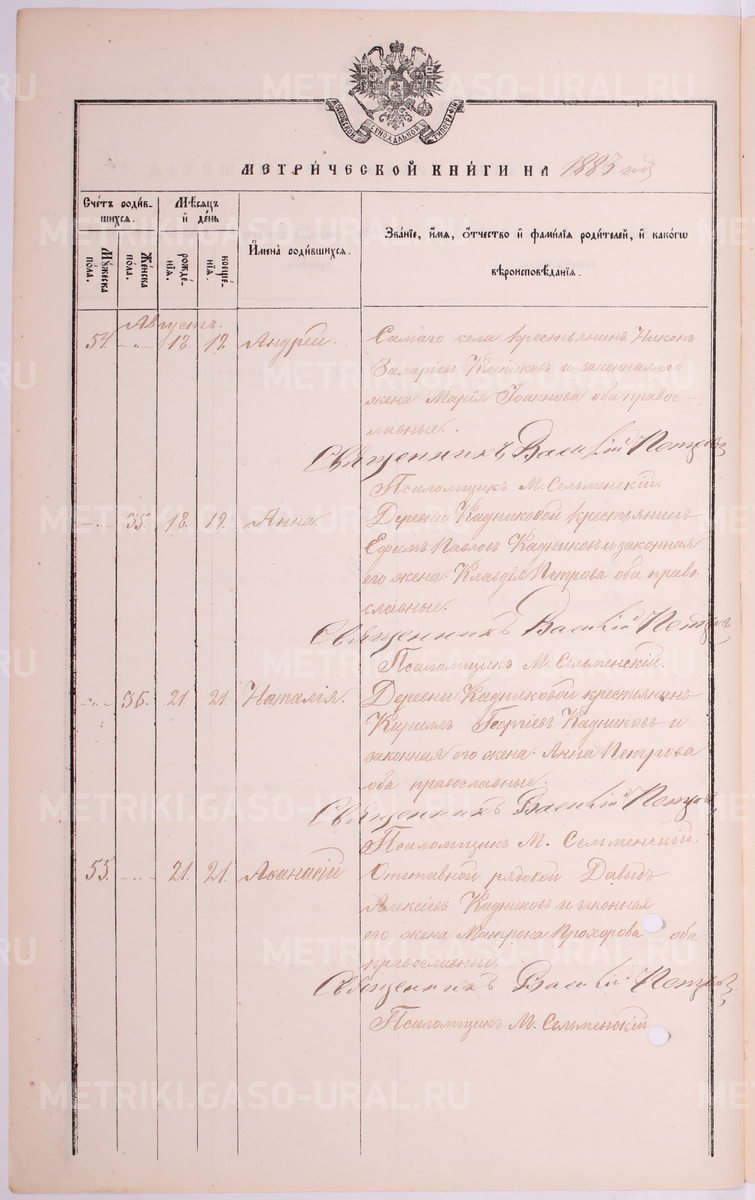 МОСКОВСКОЙ СИНОДАЛЬНОЙ ТИПОГРАФІИ
МЕТРИ́ЧЕСКОЙ КНИ́ГИ НА 1883 годъ
Сче́тъ роди́вшихся.
Мѣ́сяцъ и҆ де́нь
И҆мена̀ роди́вшихся.
Зва́нїе, и҆́мя, ѻ҆́тчество и҆ фами́лїя роди́телей, и҆ како́гѡ вѣроисповѣ́данїя.
Мꙋ́жеска по́ла.
Же́нска по́ла.
рожде́нїя.
креще́нїя.
Августъ.
54. - " - 18. 19. Андрей. Самаго села крестьянинъ Никонъ
Захаріевъ и законная его
жена Марія Іоаннова оба правос-
лавные.
Священникъ Василій Петровъ
Псаломщикъ М. Сельменскій.
- " - 35. 18. 19. Анна. Деревни Кадниковой крестьянинъ
Ефимъ Павловъ Кадниковъ и законная
его жена Клавдія Петрова оба право-
славные.
Священникъ Василій Петровъ
Псаломщикъ М. Сельменскій.
- " - 36. 21. 21. Наталія. Деревни Кадниковой крестьянинъ
Кириллъ Георгіевъ Кадниковъ и
законная его жена Анна Петрова
оба православные.
Священникъ Василій Петровъ
Псаломщикъ М. Сельменскій.
55. - " - 21. 21. Аѳанасій Отставной рядовой Давыдъ
Алексіевъ Кадниковъ и законная
его жена Матрона Прохорова оба
православные.
Священникъ Василій Петровъ
Псаломщикъ М. Сельменскій
METRIKI.GASO-URAL.RU